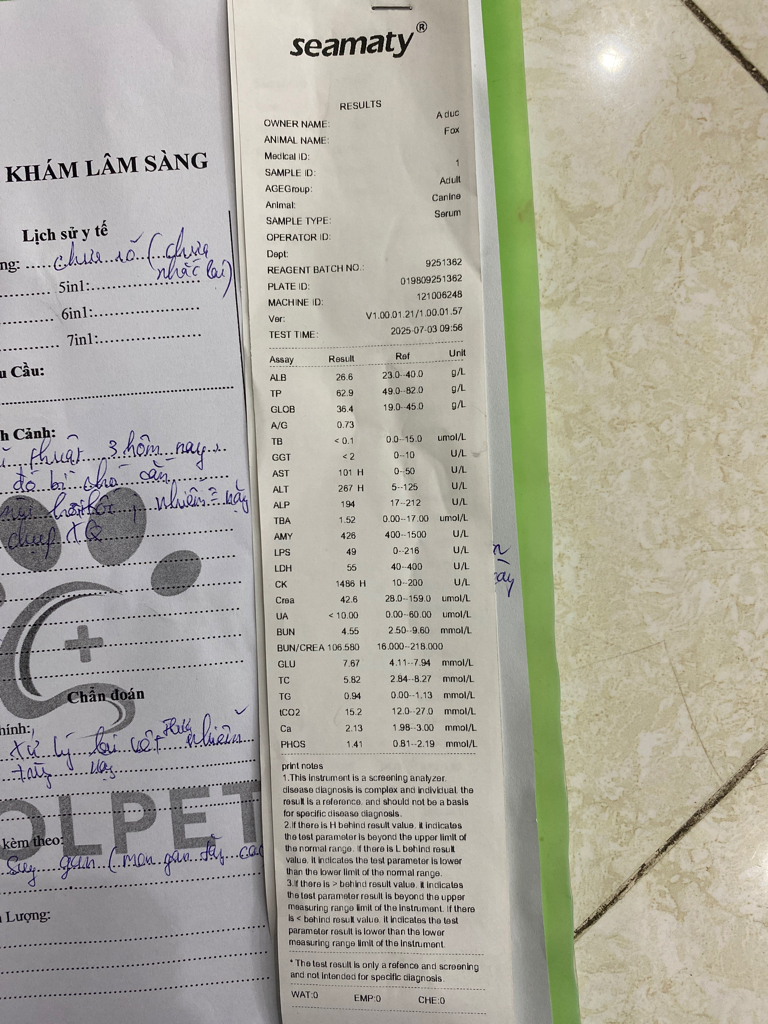 KHÁM LÂM SÀNG
Lịch sử y tế
ng: chưa rõ (chưa
nhắc lại)
5in1:
6in1:
7in1:
u Cầu:
h Cảnh:
thuật 3 hôm nay
đó bị chó cắn
nhiễm
chụp XQ
Chẩn đoán
hính:
xử lý lại vết nhiễm
kèm theo:
Suy gan (men gan
Lượng:
OLPET
seamaty®
RESULTS
OWNER NAME: A duc
ANIMAL NAME: Fox
Medical ID:
SAMPLE ID: 1
AGEGroup: Adult
Animal: Canine
SAMPLE TYPE: Serum
OPERATOR ID:
Dept:
REAGENT BATCH NO.: 9251362
PLATE ID: 019809251362
MACHINE ID: 121006248
Ver: V1.00.01.21/1.00.01.57
TEST TIME: 2025-07-03 09:56
Assay Result Ref Unit
ALB 26.6 23.0--40.0 g/L
TP 62.9 49.0--82.0 g/L
GLOB 36.4 19.0--45.0 g/L
A/G 0.73
TB < 0.1 0.0--15.0 umol/L
GGT < 2 0--10 U/L
AST 101 H 0--50 U/L
ALT 267 H 5--125 U/L
ALP 194 17--212 U/L
TBA 1.52 0.00--17.00 umol/L
AMY 426 400--1500 U/L
LPS 49 0--216 U/L
LDH 55 40--400 U/L
CK 1486 H 10--200 U/L
Crea 42.6 28.0--159.0 umol/L
UA < 10.00 0.00--60.00 umol/L
BUN 4.55 2.50--9.60 mmol/L
BUN/CREA 106.580 16.000--218.000
GLU 7.67 4.11--7.94 mmol/L
TC 5.82 2.84--8.27 mmol/L
TG 0.94 0.00--1.13 mmol/L
tCO2 15.2 12.0--27.0 mmol/L
Ca 2.13 1.98--3.00 mmol/L
PHOS 1.41 0.81--2.19 mmol/L
print notes
1.This instrument is a screening analyzer.
disease diagnosis is complex and individual, the
result is a reference, and should not be a basis
for specific disease diagnosis.
2.If there is H behind result value. It indicates
the test parameter is beyond the upper limit of
the normal range. If there is L behind result
value. It indicates the test parameter is lower
than the lower limit of the normal range.
3.If there is > behind result value. It indicates
the test parameter result is beyond the upper
measuring range limit of the instrument. If there
is < behind result value. It indicates the test
parameter result is lower than the lower
measuring range limit of the instrument.
* The test result is only a refence and screening
and not intended for specific diagnosis.
WAT:0 EMP:0 CHE:0